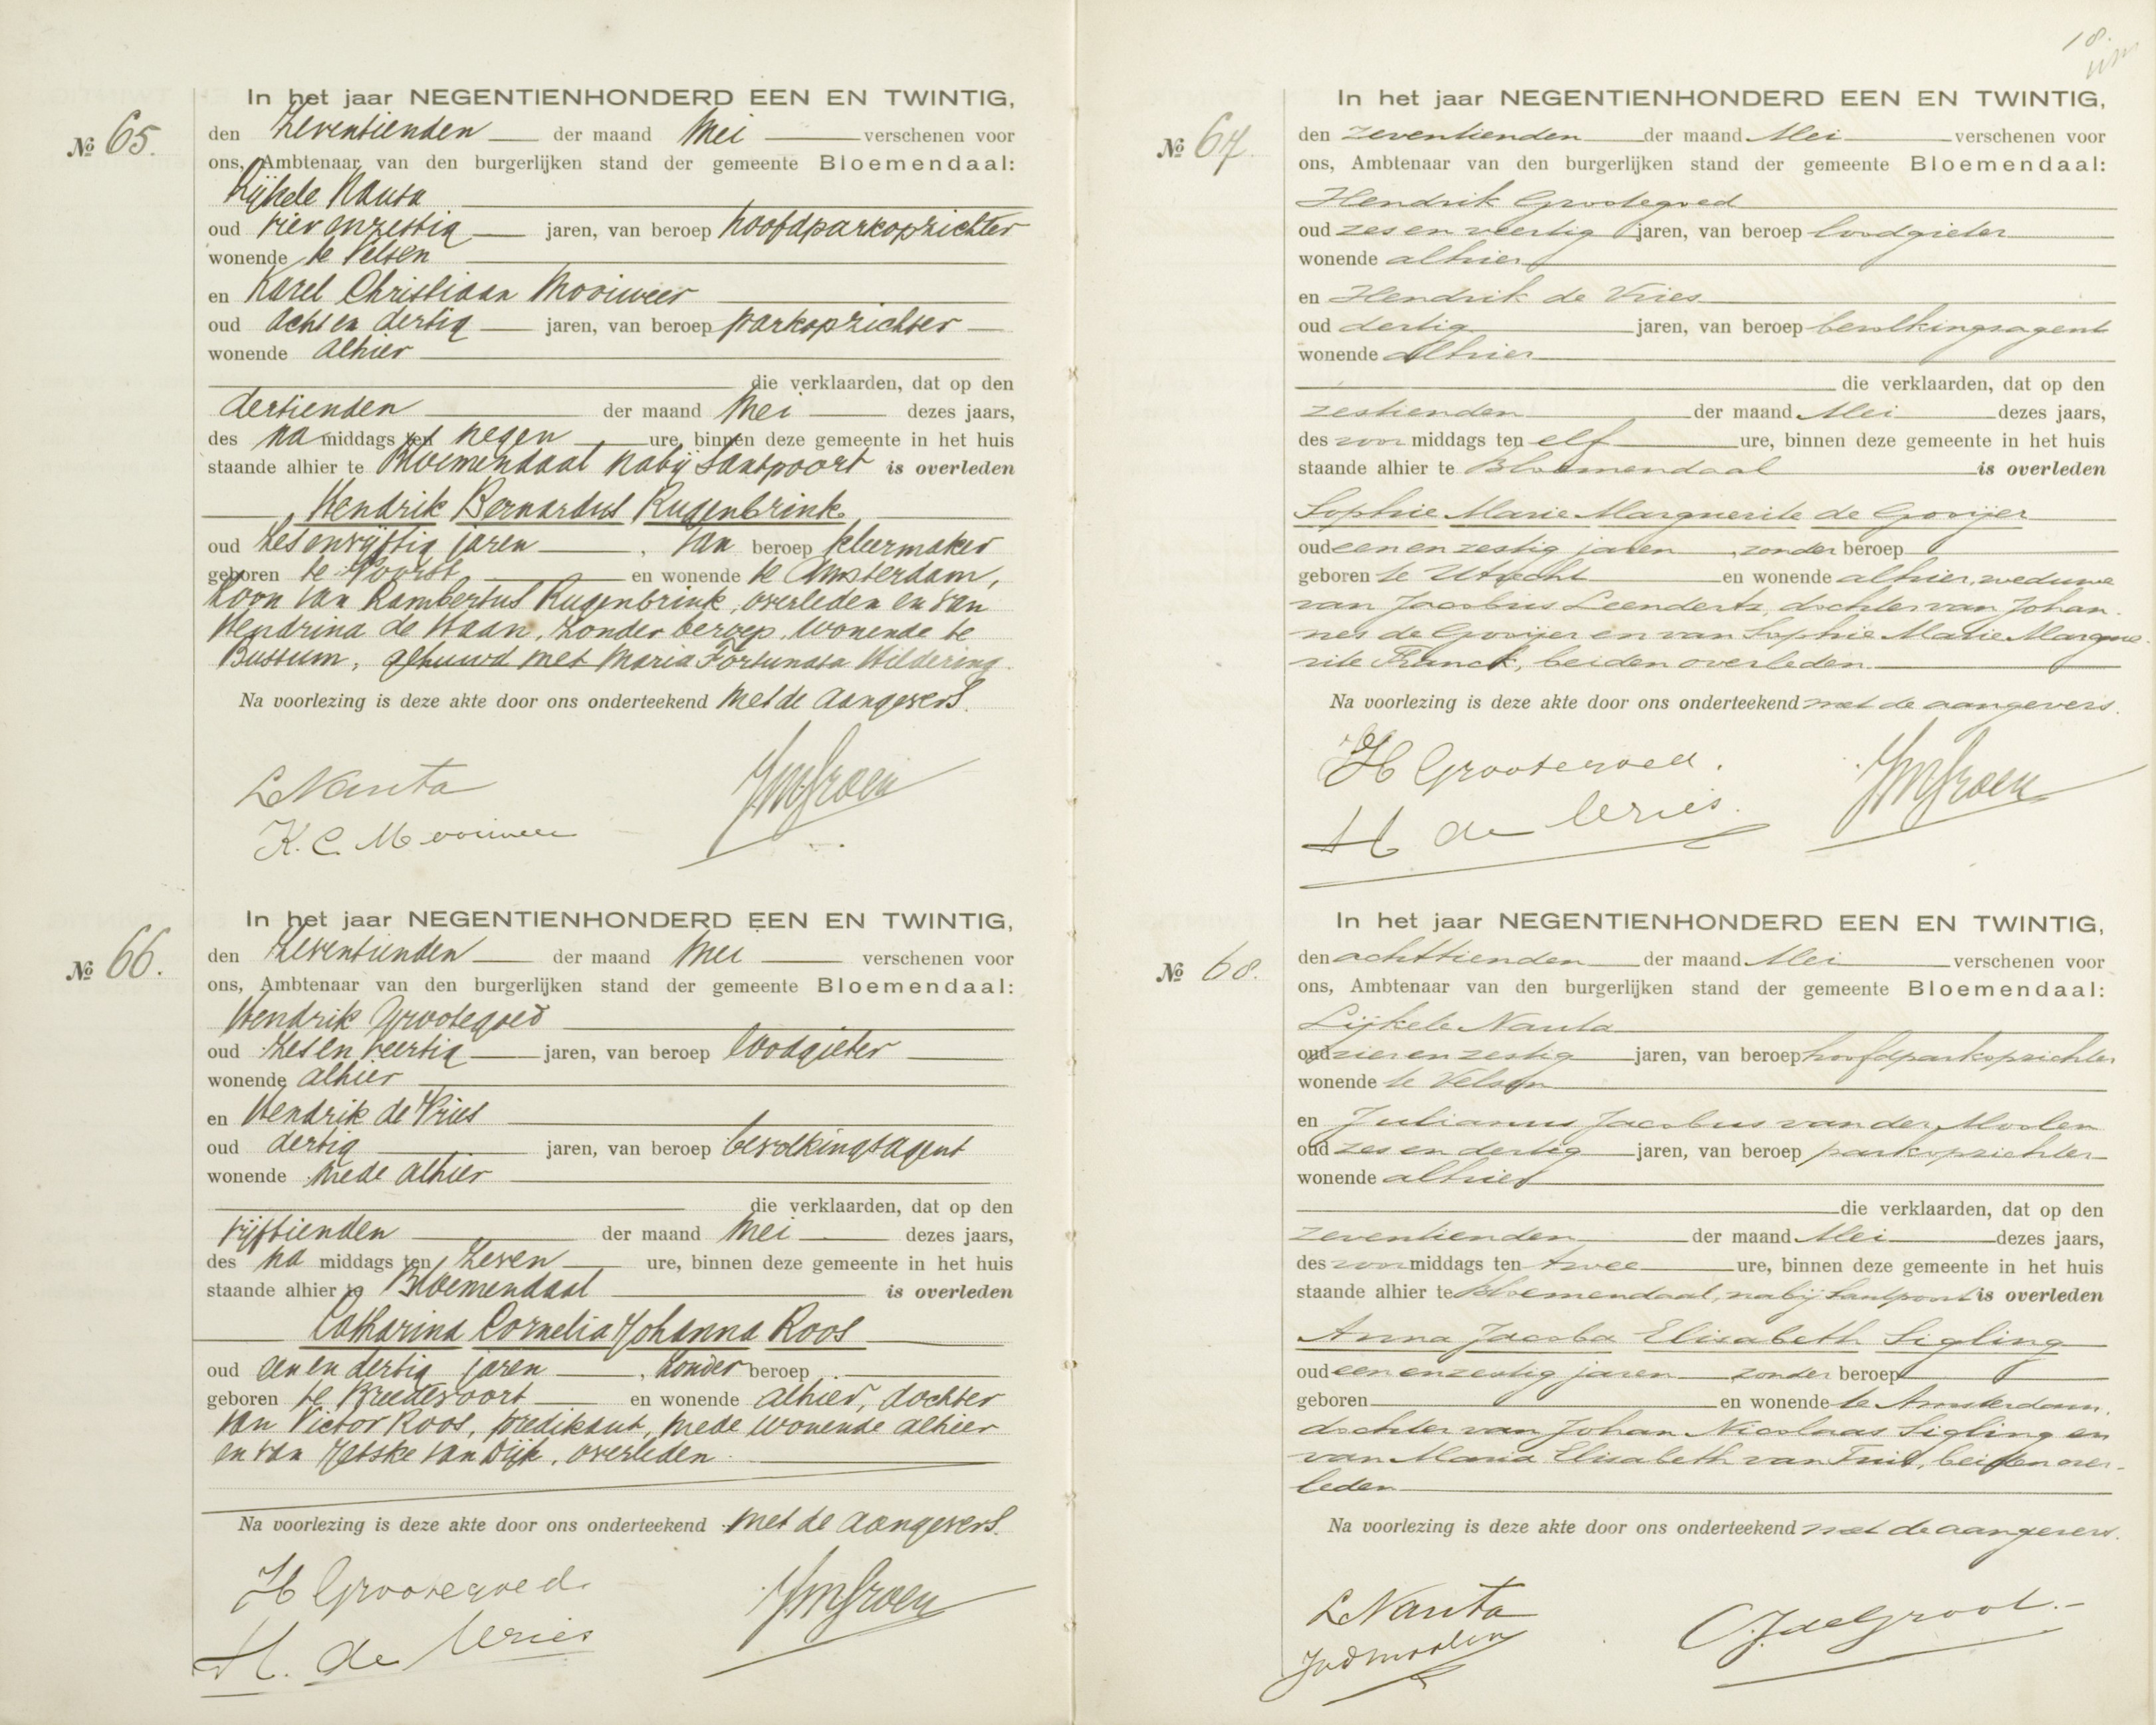 In het jaar NEGENTIENHONDERD EEN EN TWINTIG,
No 65.
den Zeventienden der maand Mei verschenen voor
ons, Ambtenaar van den burgerlijken stand der gemeente Bloemendaal:
Lijkele Nauta
oud vier en zestig jaren, van beroep hoofdparkopzichter
wonende te Velsen
en Karel Christiaan Mooiweer
oud acht en dertig jaren, van beroep parkopzichter
wonende alhier
die verklaarden, dat op den
dertienden der maand Mei dezes jaars,
des na middags ten negen ure, binnen deze gemeente in het huis
staande alhier te Bloemendaal nabij Santpoort is overleden
Hendrik Bernardus Rugenbrink
oud zes en vijftig jaren, van beroep kleermaker
geboren te Voorst en wonende te Amsterdam,
zoon van Rambertus Rugenbrink, overleden en van
Hendrina de Haan, zonder beroep, wonende te
Bussum, gehuwd met Maria Fortunata Wildering.
Na voorlezing is deze akte door ons onderteekend met de aangevers.
L Nauta
K. C. Mooiweer
In het jaar NEGENTIENHONDERD EEN EN TWINTIG,
No 66.
den Zeventienden der maand Mei verschenen voor
ons, Ambtenaar van den burgerlijken stand der gemeente Bloemendaal:
Hendrik Grootegoed
oud zes en veertig jaren, van beroep loodgieter
wonende alhier
en Hendrik de Vries
oud dertig jaren, van beroep bevolkingsagent
wonende mede alhier
die verklaarden, dat op den
vijftienden der maand Mei dezes jaars,
des na middags ten zeven ure, binnen deze gemeente in het huis
staande alhier te Bloemendaal is overleden
Catharina Cornelia Johanna Roos
oud een en dertig jaren, zonder beroep
geboren te Breedevoort en wonende alhier, dochter
van Victor Roos, predikant, mede wonende alhier
en van Jetske van Dijk, overleden.
Na voorlezing is deze akte door ons onderteekend met de aangevers.
H Grootegoed.
H. de Vries
18.
In het jaar NEGENTIENHONDERD EEN EN TWINTIG,
No 67.
den zeventienden der maand Mei verschenen voor
ons, Ambtenaar van den burgerlijken stand der gemeente Bloemendaal:
Hendrik Grootegoed
oud zes en veertig jaren, van beroep loodgieter
wonende alhier
en Hendrik de Vries
oud dertig jaren, van beroep bevolkingsagent
wonende alhier
die verklaarden, dat op den
zestienden der maand Mei dezes jaars,
des voor middags ten elf ure, binnen deze gemeente in het huis
staande alhier te Bloemendaal is overleden
Sophie Marie Marguerite de Gooijer
oud een en zestig jaren, zonder beroep
geboren te Utrecht en wonende alhier, weduwe
van Jacobus Leendertz, dochter van Johan-
nes de Gooijer en van Sophie Marie Margue-
rite Franck, beiden overleden.
Na voorlezing is deze akte door ons onderteekend met de aangevers.
H Grootegoed.
H de Vries.
In het jaar NEGENTIENHONDERD EEN EN TWINTIG,
No 68.
den achttienden der maand Mei verschenen voor
ons, Ambtenaar van den burgerlijken stand der gemeente Bloemendaal:
Lijkele Nauta
oud vier en zestig jaren, van beroep hoofdparkopzichter
wonende te Velsen
en Julianus Jacobus van der Moolen
oud zes en dertig jaren, van beroep parkopzichter
wonende alhier
die verklaarden, dat op den
zeventienden der maand Mei dezes jaars,
des voor middags ten twee ure, binnen deze gemeente in het huis
staande alhier te Bloemendaal, nabij Santpoort is overleden
Anna Jacoba Elisabeth Sigling
oud een en zestig jaren zonder beroep
geboren en wonende te Amsterdam,
dochter van Johan Nicolaas Sigling en
van Maria Elisabeth van Tuil, beiden over-
leden
Na voorlezing is deze akte door ons onderteekend met de aangevers.
L Nauta
JvdMoolen